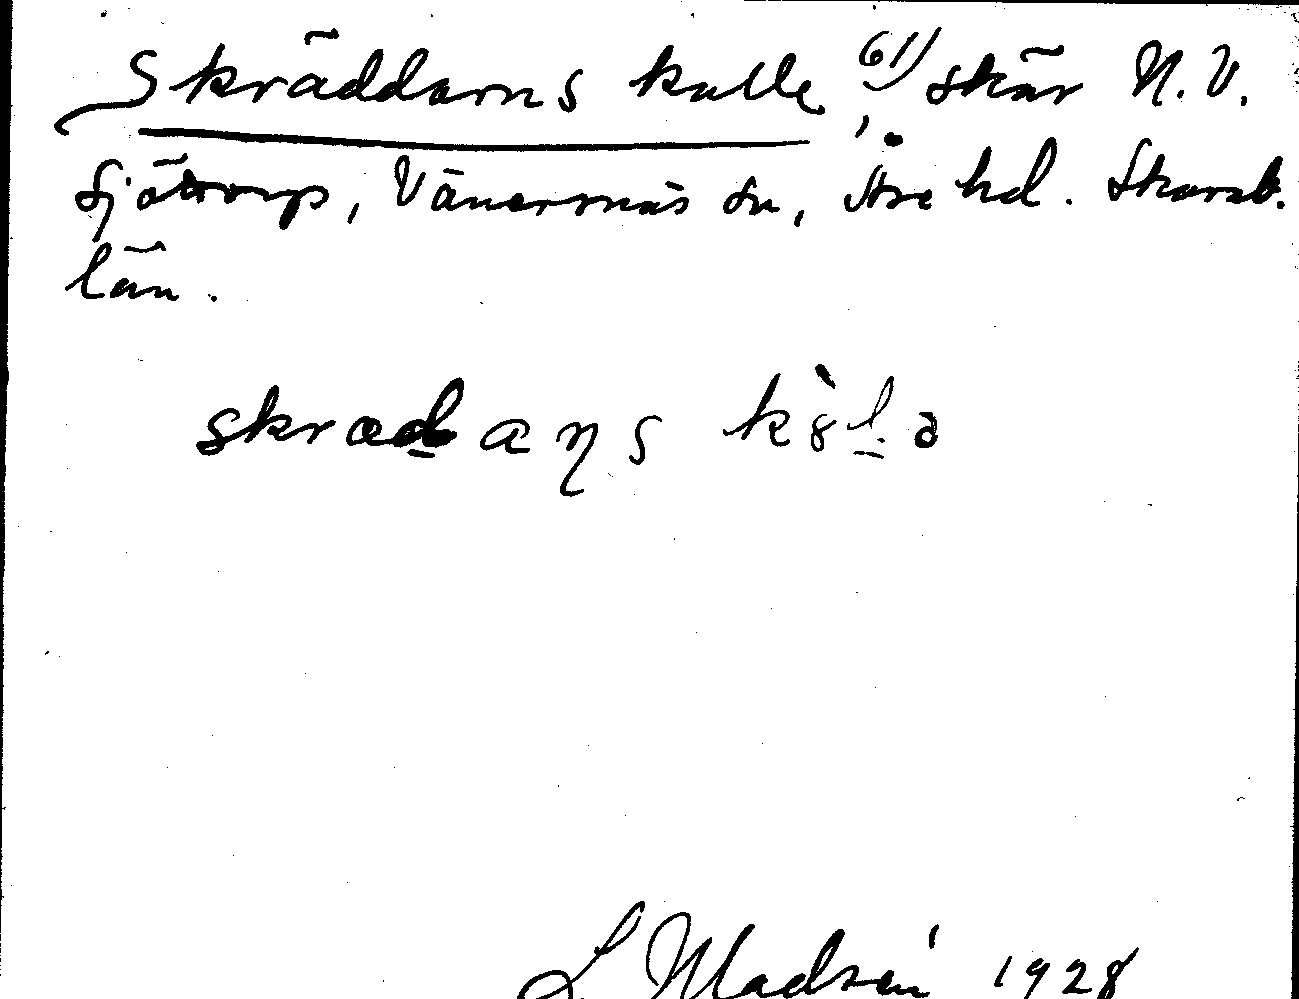 Skräddarns kulle, 61) skär N.V.
Sjötorp, Vänersnäs sn, Åse hd. Skarab.
län.
skrædaṇs kȣ̀lə
L Madsén 1928